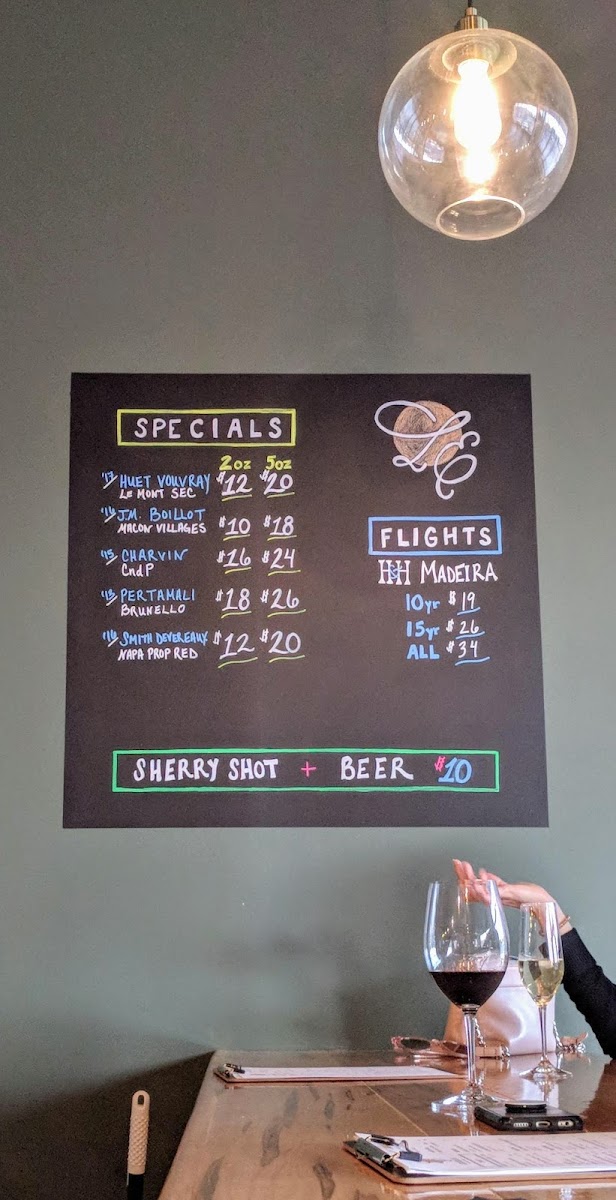 SPECIALS
2oz 5oz
'17 HUET VOUVRAY $12 $20
LE MONT SEC
J.M. BOILLOT $10 $18
MACON VILLAGES
'15 CHARVIN $16 $24
CndP
'13 PERTAMALI $18 $26
BRUNELLO
'16 SMITH DEVEREAUX $12 $20
NAPA PROP RED
FLIGHTS
H&H MADEIRA
10yr $19
15yr $26
ALL $34
SHERRY SHOT + BEER $10